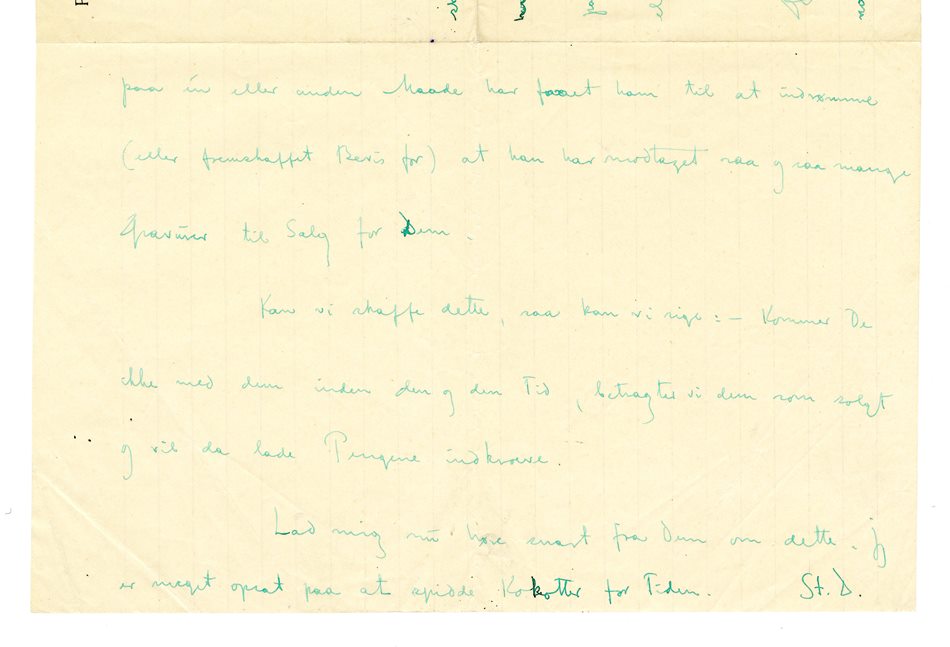 paa én eller anden Maade har faaet ham til at indrømme
(eller fremskaffet Bevis for) at han har modtaget saa og saa mange
Gravurer til Salg for Dem.
Kan vi skaffe dette, saa kan vi sige: — Kommer De
ikke med dem inden den og den Tid, betragter vi dem som solgt
og vil da lade Pengene indkræve.
Lad mig nu høre snart fra Dem om dette. Jeg
er meget opsat paa at spidde Kokotter for Tiden. St. D.